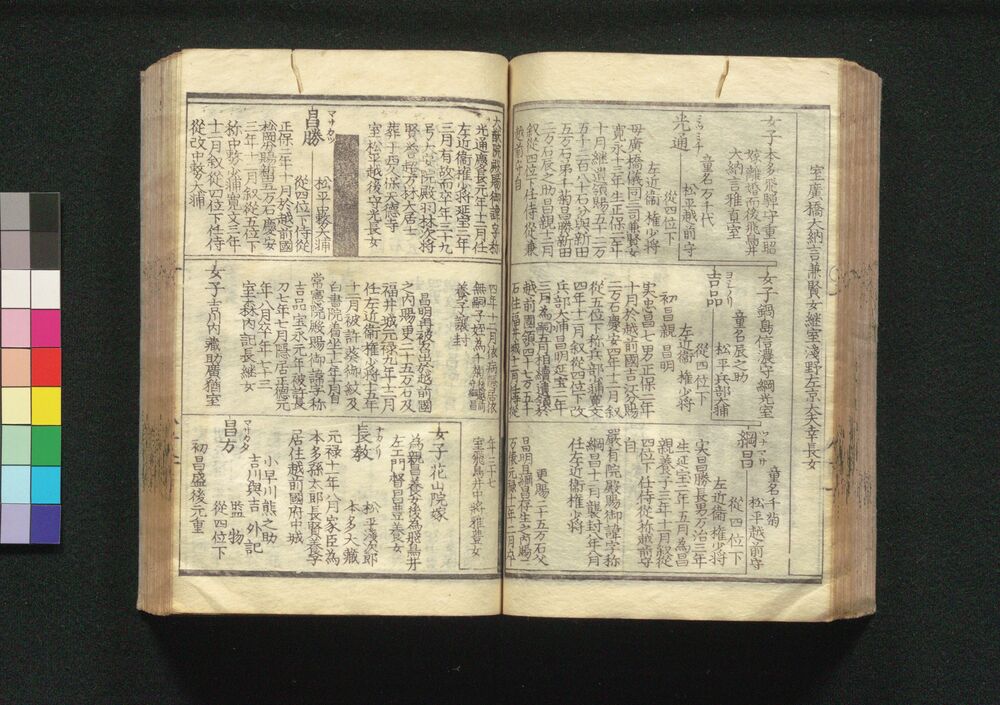 室廣橋大納言兼賢女継室淺野左京大夫幸長女
女子本多飛騨守重昭
嫁離婚而後飛鳥井
大納言雅直室
ミツミチ
光通
童名万千代
松平越前守
從四位下
左近衛権少将
母廣橋儀同三司兼賢女
寛永十三年生正保二年
十月継遺領賜五十二万
五千二百八十石分與新田
五万石弟千菊昌勝新田
二万石辰之助昌親三月
叙從四位下任侍從兼
越前守自
女子鍋島信濃守綱光室
ヨシノリ
吉品
童名辰之助
松平兵部大輔
從四位下
左近衛権少将
初昌親 昌明
実忠昌七男正保二年
十月於越前國吉江分賜
二万石慶安四年十二月叙
從五位下称兵部少輔寛文
四年十二月叙從四位下改
兵部大輔昌明延宝二年
三月為嗣五月相續遺領於
越前國領四十七万五千
石住福井城十一月侍從
ツナマサ
綱昌
童名千菊
松平越前守
從四位下
左近衛権少将
実昌勝長男万治三年
生延宝二年五月為昌
親養子三年十一月叙從
四位下任侍從称越前守
自
嚴有院殿賜御諱字称
綱昌十一月襲封八年八月
任左近衛権少将
更賜二十五万石父
昌明且綱昌存生之内賜二
万俵元禄十二年二月卒
大猷院殿賜御諱字称
光通慶安元年十二月任
左近衛権少将延宝二年
三月有故而卒年三十九
号大安院殿羽林次将
賢誉
葬于西久保天徳寺
室松平越後守光長女
マサカツ
昌勝
松平中務大輔
從四位下侍從
正保二年十月於越前國
松岡分賜五万石慶安
三年十二月叙從五位下
称中務少輔寛文三年
十二月叙從四位下任侍
從改中務大輔
四年十二月依病隠居依
無嗣子姪為十菊
養子讓封
昌明再被召出於越前國
之内賜更二十五万石及
福井城元禄九年十二月
任左近衛権少将十五年
十二月被許葵御紋及
白書院着坐十七年十月自
常憲院殿賜御諱字称
吉品宝永元年被許長
刀七年七月隠居正徳元
年八月卒年七十二
室森内記長継女
女子吉川内蔵助廣猶室
年二十七
室飛鳥井中将雅豊女
女子花山院嫁
為親昌養女後為飛鳥井
左エ門督昌豊養女
ナガノリ
長教
松平源次郎
本多大蔵
元禄十一年八月家臣為
本多孫太郎長賢養子
居住越前國府中城
マサカタ
昌方
小早川熊之助
吉川與吉 外記
監物
從四位下
初昌盛後元重